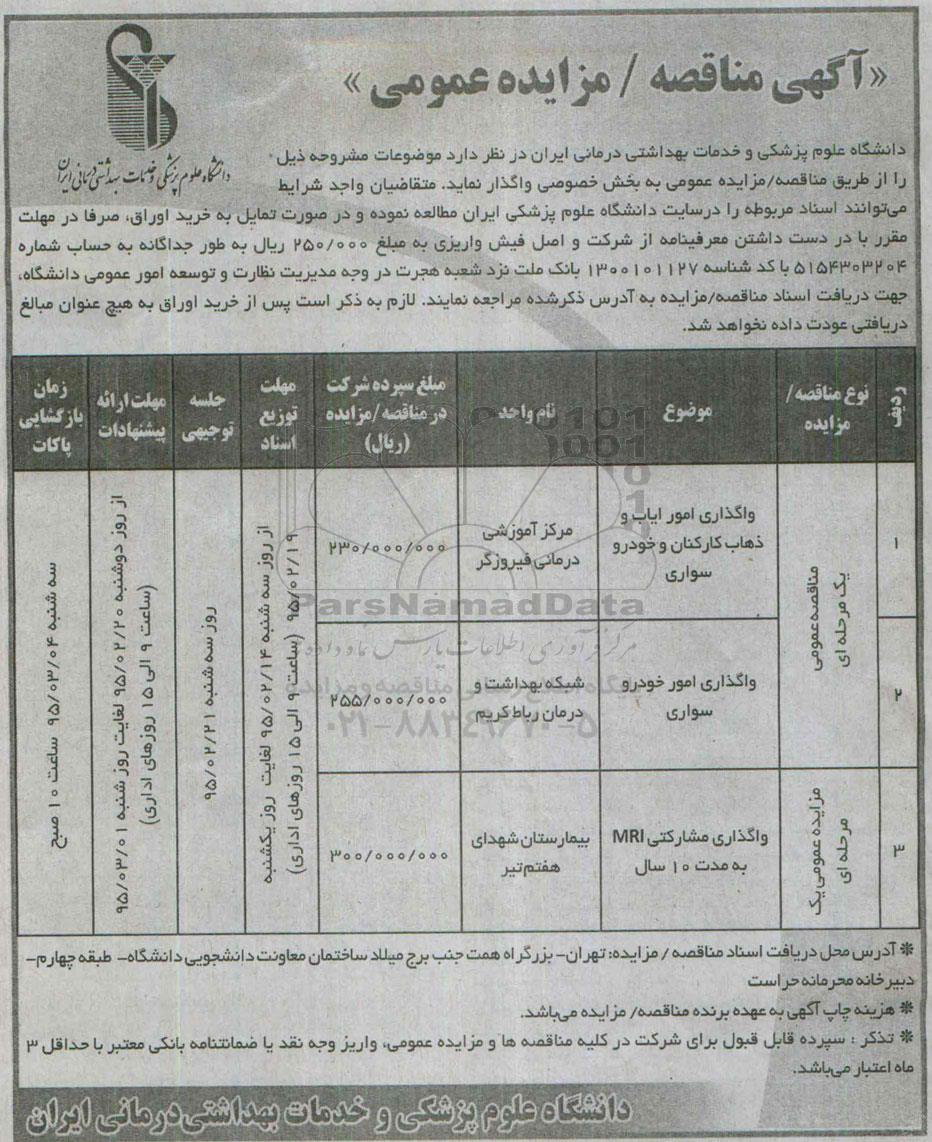 «آگهی مناقصه / مزایده عمومی»
دانشگاه علوم پزشکی و خدمات بهداشتی درمانی ایران
دانشگاه علوم پزشکی و خدمات بهداشتی درمانی ایران در نظر دارد موضوعات مشروحه ذیل
را از طریق مناقصه/مزایده عمومی به بخش خصوصی واگذار نماید. متقاضیان واجد شرایط
می‌توانند اسناد مربوطه را درسایت دانشگاه علوم پزشکی ایران مطالعه نموده و در صورت تمایل به خرید اوراق، صرفا در مهلت
مقرر با در دست داشتن معرفینامه از شرکت و اصل فیش واریزی به مبلغ ۲۵۰/۰۰۰ ریال به طور جداگانه به حساب شماره
۵۱۵۴۳۰۳۲۰۴ با کد شناسه ۱۳۰۰۱۰۱۱۲۷ بانک ملت نزد شعبه هجرت در وجه مدیریت نظارت و توسعه امور عمومی دانشگاه،
جهت دریافت اسناد مناقصه/مزایده به آدرس ذکرشده مراجعه نمایند. لازم به ذکر است پس از خرید اوراق به هیچ عنوان مبالغ
دریافتی عودت داده نخواهد شد.
ردیف
نوع مناقصه/
مزایده
موضوع
نام واحد
مبلغ سپرده شرکت
در مناقصه/مزایده
(ریال)
مهلت
توزیع
اسناد
جلسه
توجیهی
مهلت ارائه
پیشنهادات
زمان
بازگشایی
پاکات
۱
مناقصه عمومی
یک مرحله ای
واگذاری امور ایاب و
ذهاب کارکنان و خودرو
سواری
مرکز آموزشی
درمانی فیروزگر
۲۳۰/۰۰۰/۰۰۰
از روز سه شنبه ۹۵/۰۲/۱۴ لغایت روز یکشنبه
۹۵/۰۲/۱۹ (ساعت ۹ الی ۱۵ روزهای اداری)
روز سه شنبه ۹۵/۰۲/۲۱
از روز دوشنبه ۹۵/۰۲/۲۰ لغایت روز شنبه ۹۵/۰۳/۰۱
(ساعت ۹ الی ۱۵ روزهای اداری)
سه شنبه ۹۵/۰۳/۰۴ ساعت ۱۰ صبح
۲
واگذاری امور خودرو
سواری
شبکه بهداشت و
درمان رباط کریم
۲۵۵/۰۰۰/۰۰۰
۳
مزایده عمومی یک
مرحله ای
واگذاری مشارکتی MRI
به مدت ۱۰ سال
بیمارستان شهدای
هفتم تیر
۳۰۰/۰۰۰/۰۰۰
ParsNamadData
مرکز فرآوری اطلاعات پارس نماد داده ها
۰۲۱-۸۸۳۴۹۶۷۰-۵
❊ آدرس محل دریافت اسناد مناقصه / مزایده: تهران- بزرگراه همت جنب برج میلاد ساختمان معاونت دانشجویی دانشگاه- طبقه چهارم-
دبیرخانه محرمانه حراست
❊ هزینه چاپ آگهی به عهده برنده مناقصه/ مزایده می‌باشد.
❊ تذکر : سپرده قابل قبول برای شرکت در کلیه مناقصه ها و مزایده عمومی، واریز وجه نقد یا ضمانتنامه بانکی معتبر با حداقل ۳
ماه اعتبار می‌باشد.
دانشگاه علوم پزشکی و خدمات بهداشتی درمانی ایران